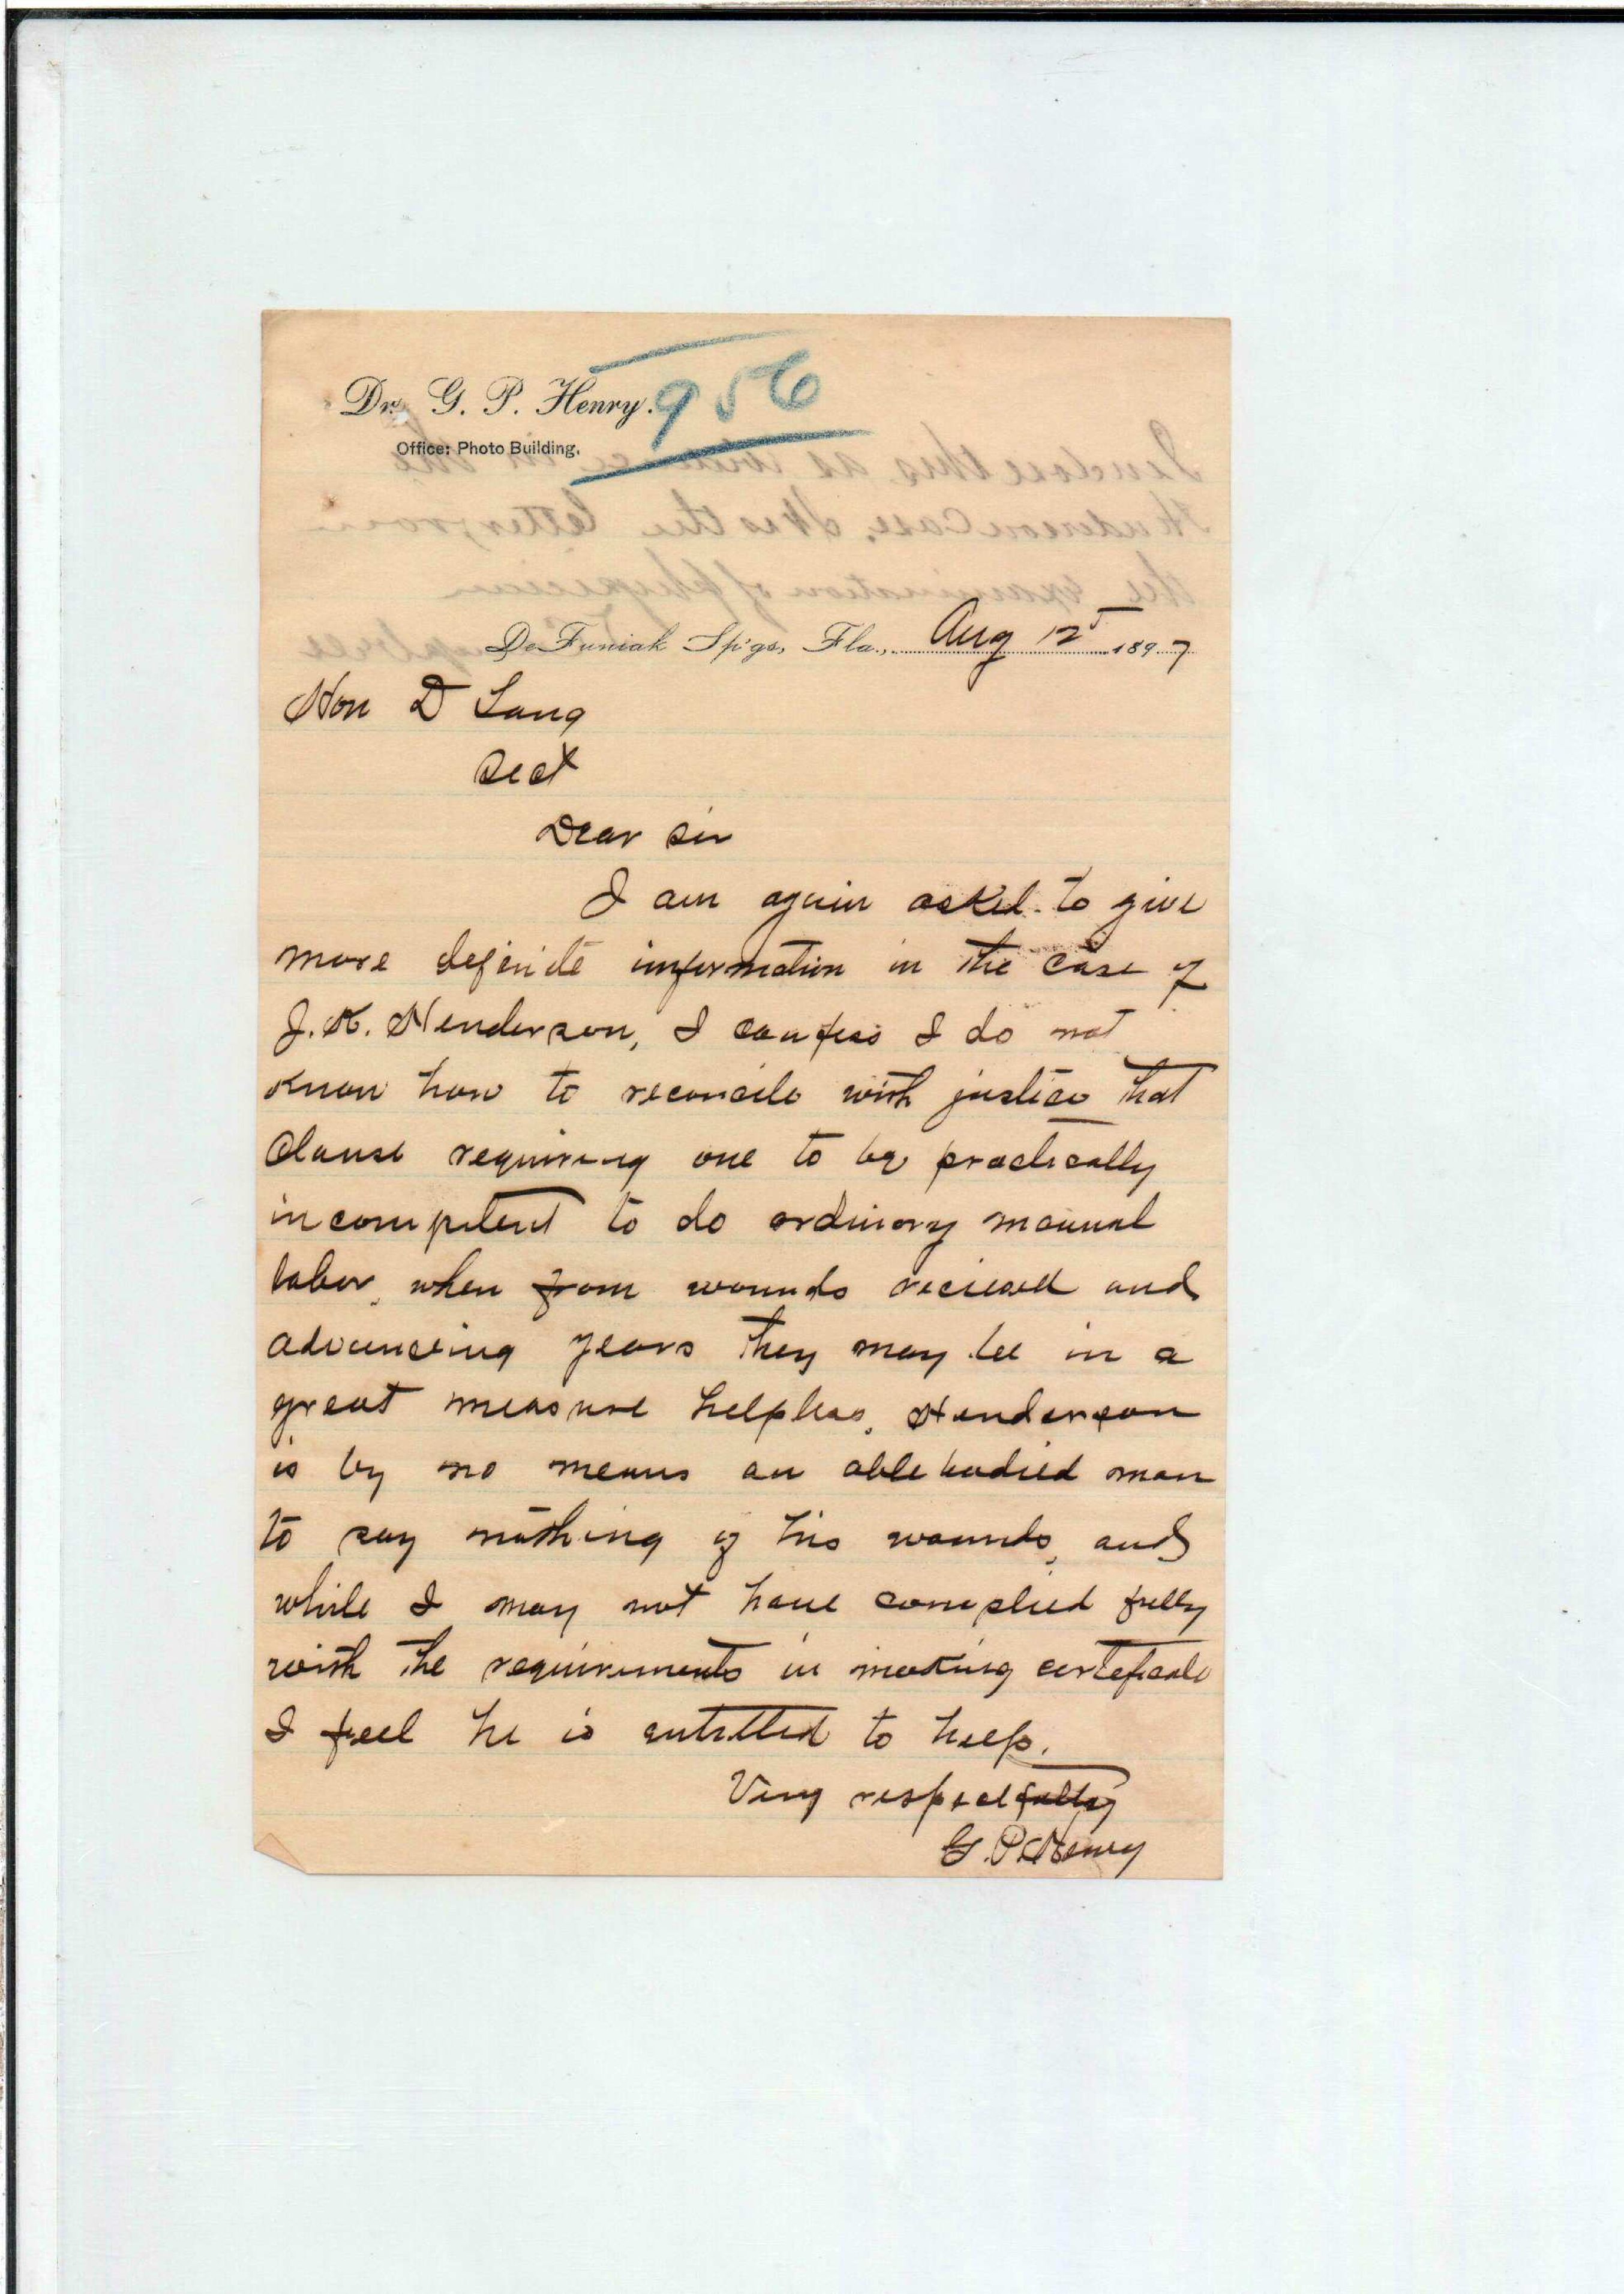 Dr. G. P. Henry.
956
Office: Photo Building.
DeFuniak Sp'gs, Fla., Aug 12 1897
Hon D Lang
Sect
Dear Sir
I am again asked to give
more definite information in the case of
J. K. Henderson, I confess I do not
know how to reconcile with justice that
Clause requiring one to be practically
incompetent to do ordinary manual
labor, when from wounds recieved and
advanceing years they may be in a
great measure helpless, Henderson
is by no means an ablebodied man
to say nothing of his wounds, and
while I may not have complied fully
with the requirements in making certeficate
I feel he is entitled to help.
Very respectfully
G. P. Henry